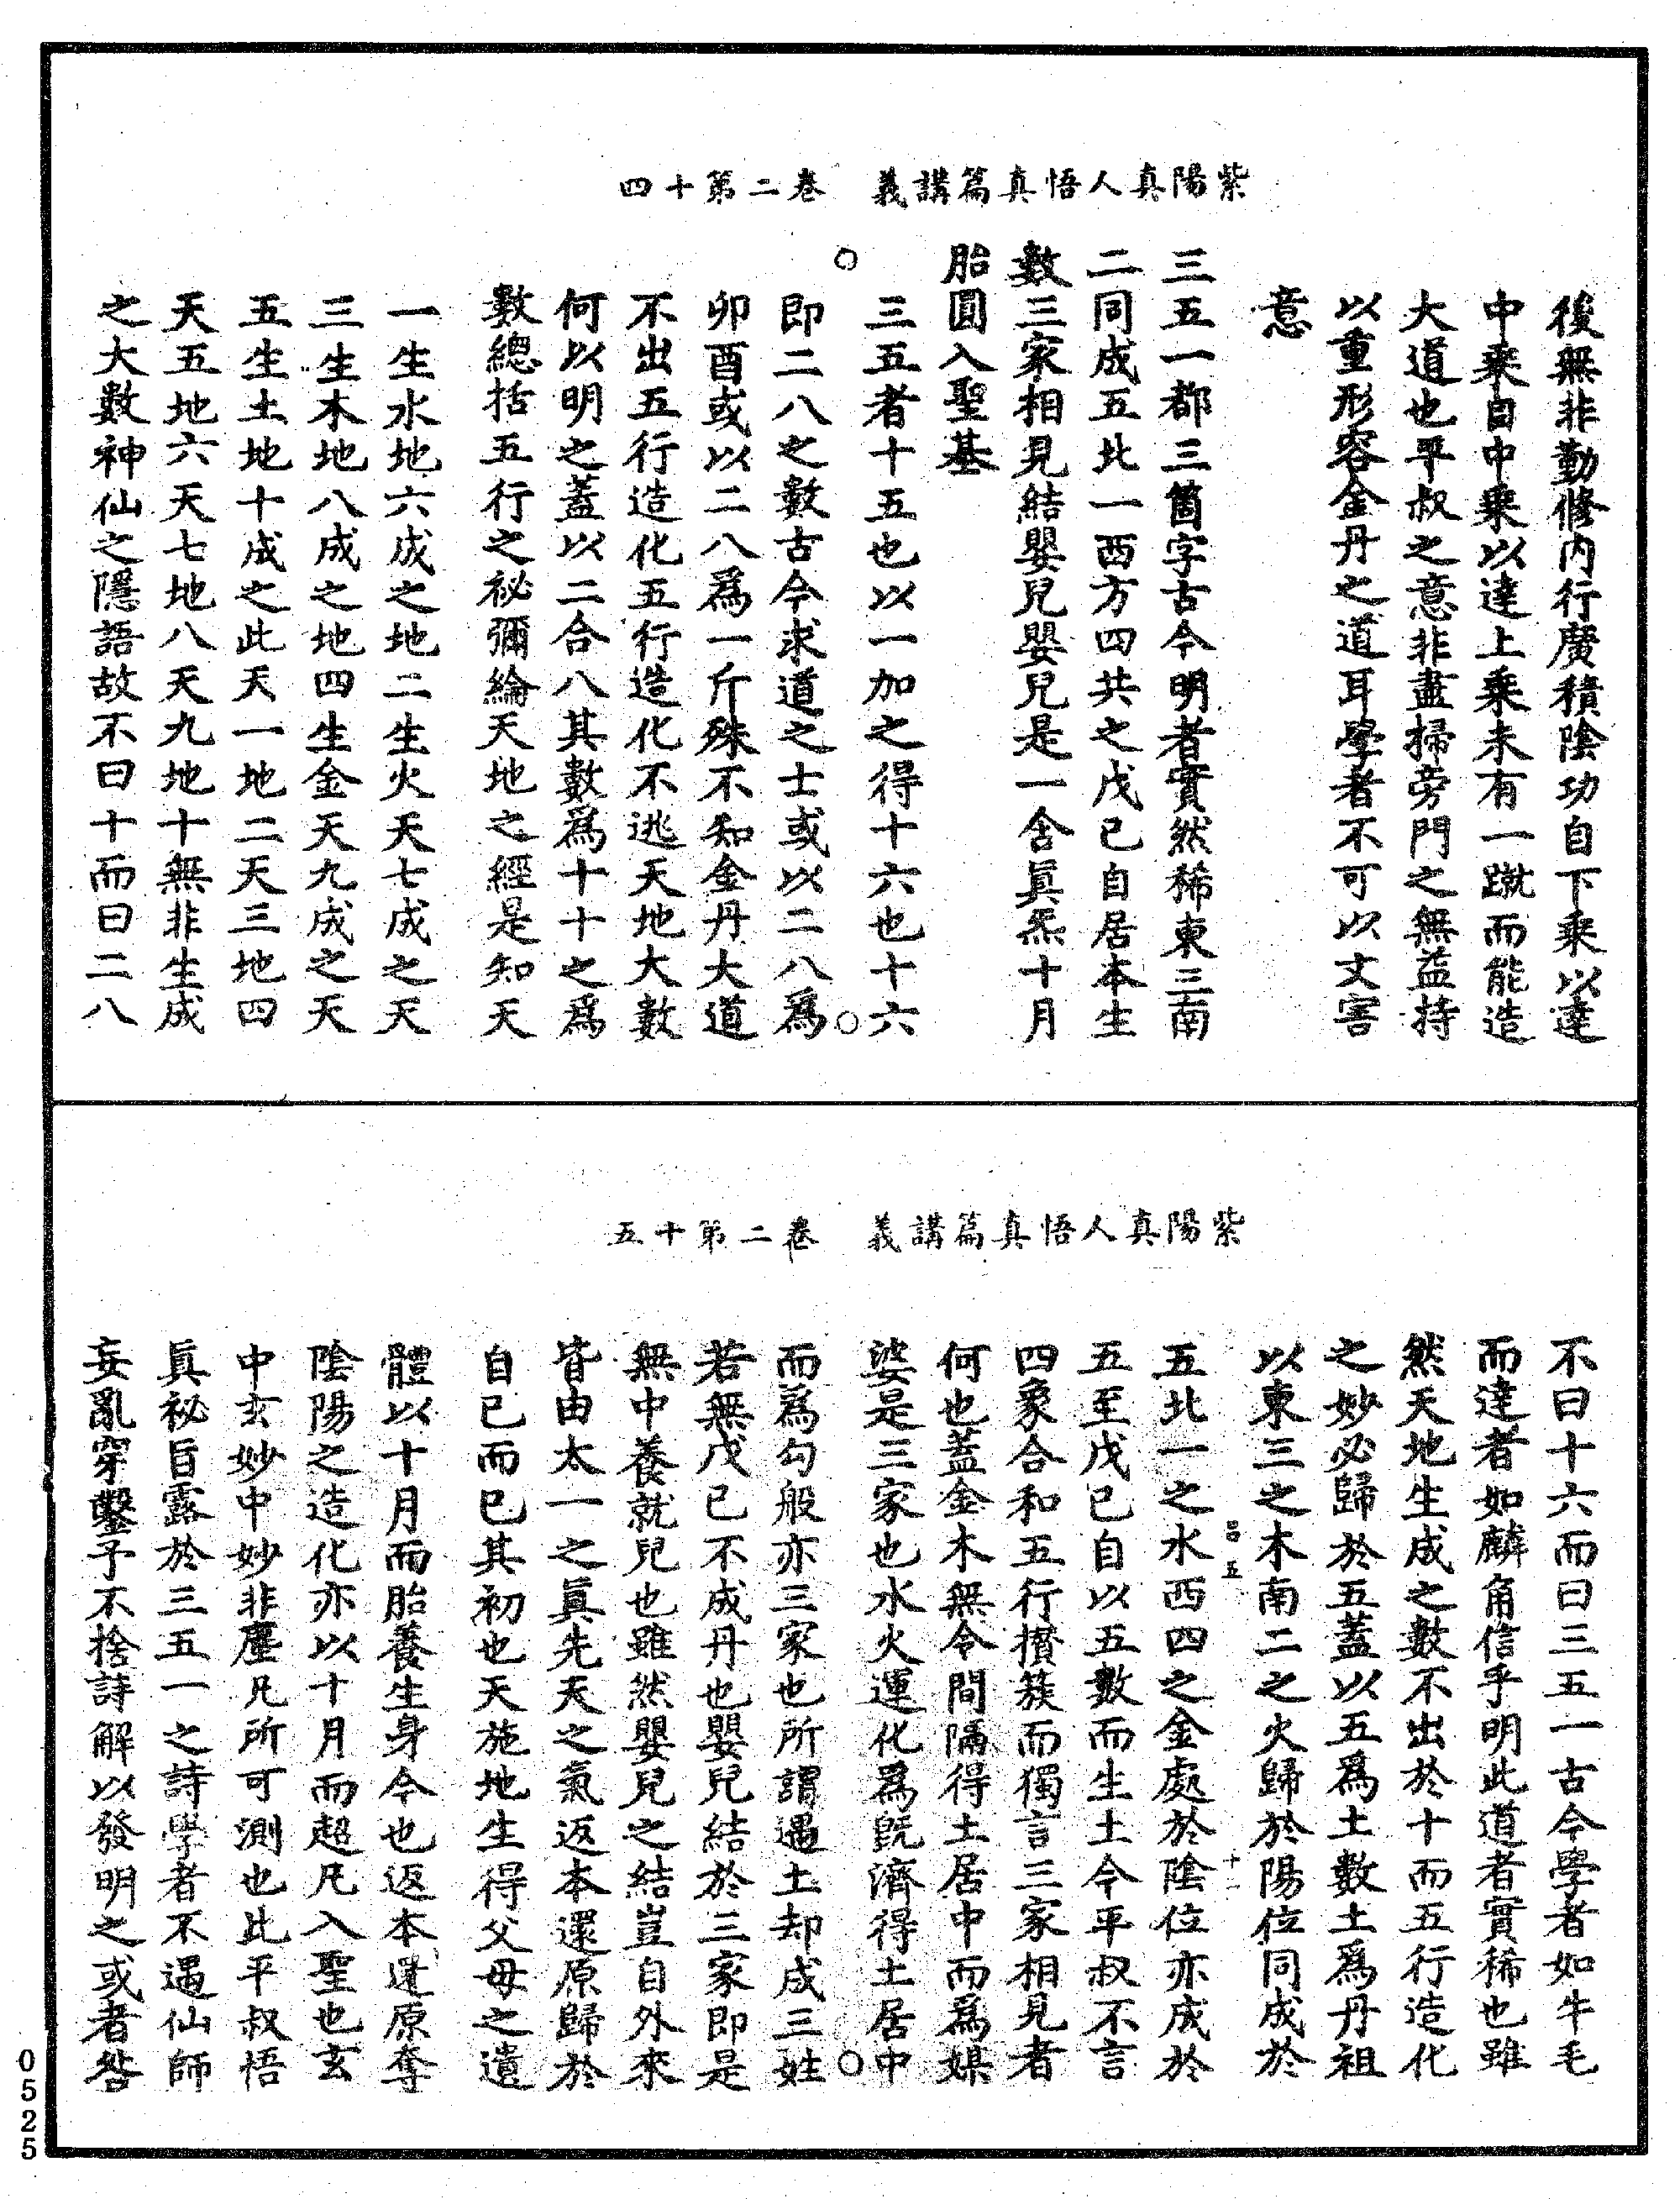 紫陽真人悟真篇講義　卷二第十四
後無非勤修内行廣積陰功自下乘以達
中乘自中乘以達上乘未有一蹴而能造
大道也平叔之意非盡掃旁門之無益持
以重形容金丹之道耳學者不可以文害
意
三五一都三箇字古今明者實然稀東三南
二同成五北一西方四共之戊己自居本生
數三家相見結嬰兒嬰兒是一含眞炁十月
胎圓入聖基
三五者十五也以一加之得十六也十六
即二八之數古今求道之士或以二八爲
卯酉或以二八爲一斤殊不知金丹大道
不出五行造化五行造化不逃天地大數
何以明之蓋以二合八其數爲十十之爲
數總括五行之祕彌綸天地之經是知天
一生水地六成之地二生火天七成之天
三生木地八成之地四生金天九成之天
五生土地十成之此天一地二天三地四
天五地六天七地八天九地十無非生成
之大數神仙之隱語故不曰十而曰二八
紫陽真人悟真篇講義　卷二第十五
不曰十六而曰三五一古今學者如牛毛
而達者如麟角信乎明此道者實稀也雖
然天地生成之數不出於十而五行造化
之妙必歸於五蓋以五爲土數土爲丹祖
以東三之木南二之火歸於陽位同成於
五北一之水西四之金處於陰位亦成於
五至戊己自以五數而生土今平叔不言
四象合和五行攢簇而獨言三家相見者
何也蓋金木無令間隔得土居中而爲媒
婆是三家也水火運化爲旣濟得土居中
而爲勾般亦三家也所謂遇土却成三姓
若無戊己不成丹也嬰兒結於三家即是
無中養就兒也雖然嬰兒之結豈自外來
皆由太一之眞先天之氣返本還原歸於
自已而已其初也天施地生得父母之遺
體以十月而胎養生身今也返本還原奪
陰陽之造化亦以十月而超凡入聖也玄
中玄妙中妙非塵凡所可測也此平叔悟
眞祕旨露於三五一之詩學者不遇仙師
妄亂穿鑿予不捨詩解以發明之或者咎
0525